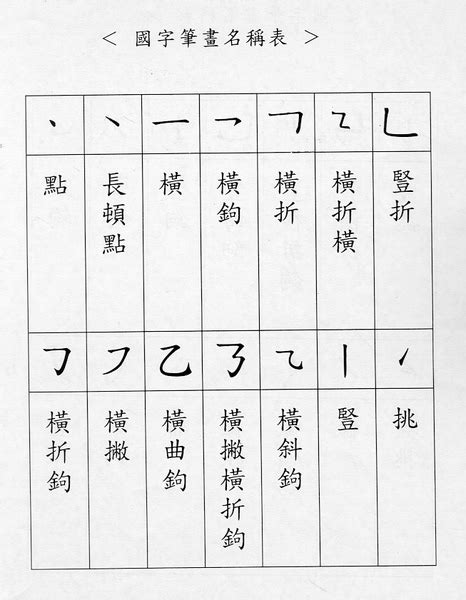 < 國字筆畫名稱表 >
丶 ㇔ 一 ㇖ ㇕ ㇍ ㇗
點
長頓點
橫
橫鉤
橫折
橫折橫
豎折
㇆ ㇇ 乙 ㇡ ⺄ 丨 ㇀
橫折鉤
橫撇
橫曲鉤
橫撇橫折鉤
橫斜鉤
豎
挑